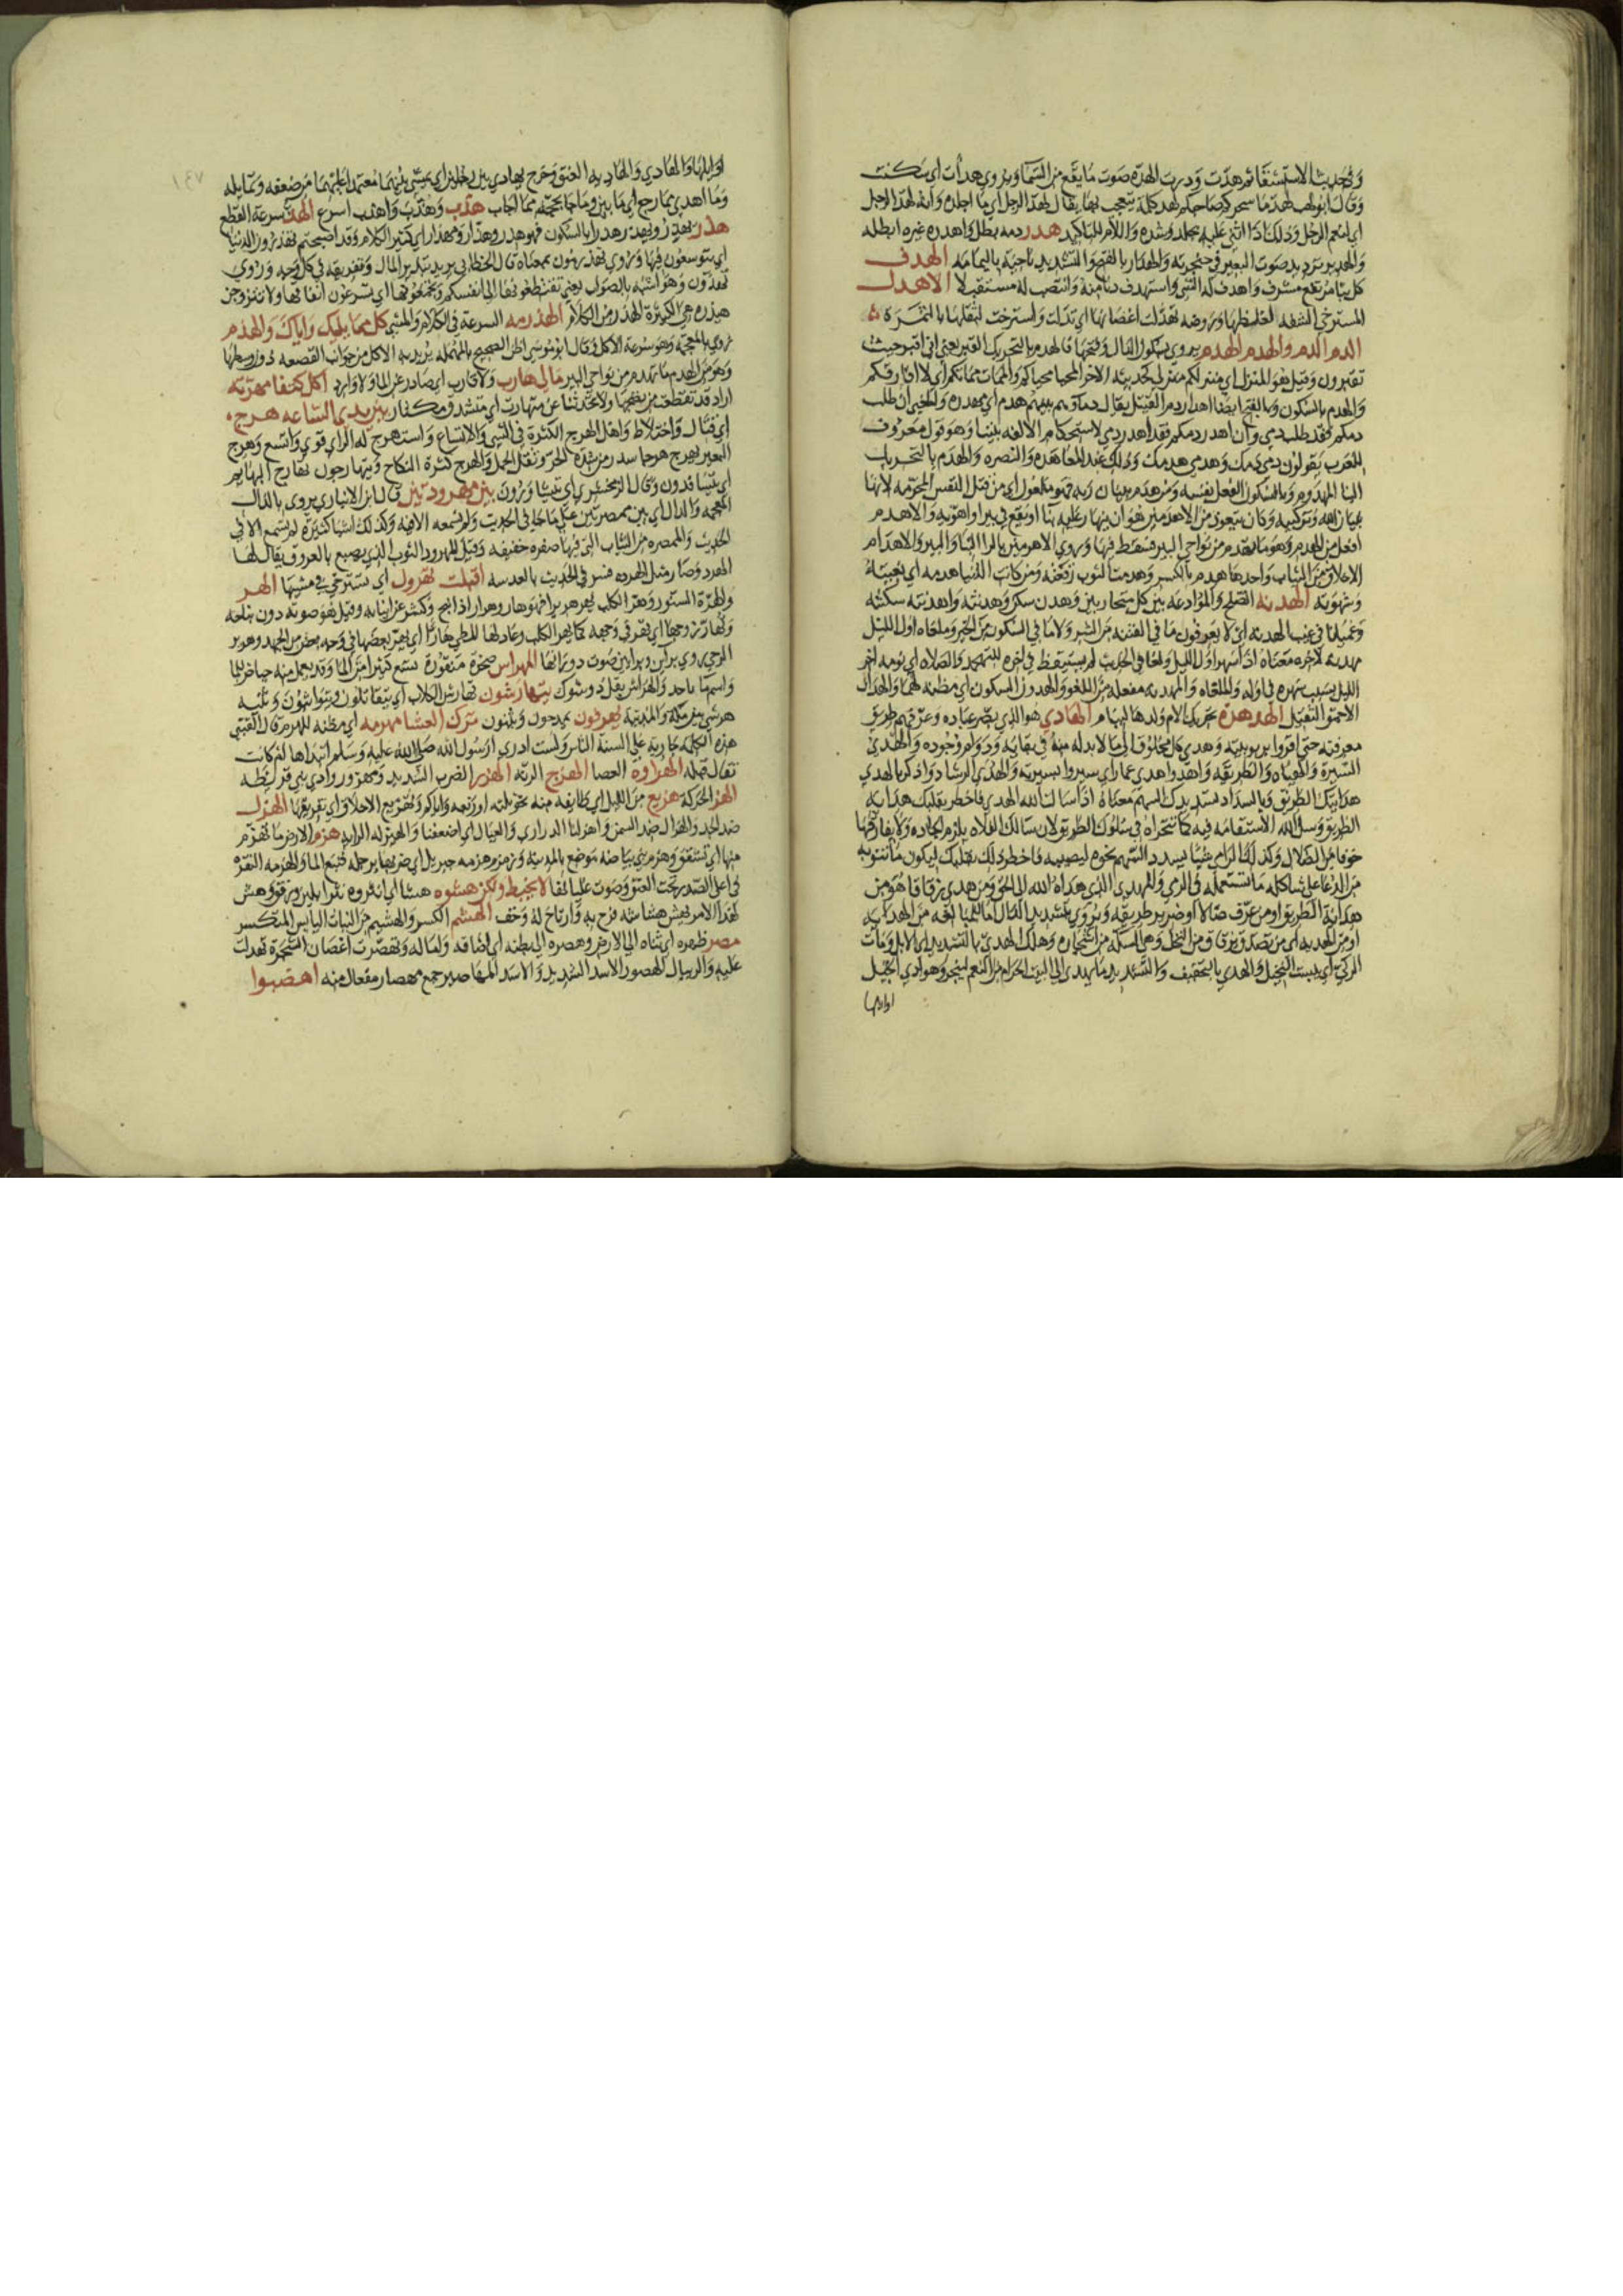 وفي حديث الاستسقا ثم هدت ودرت الهدة صوت ما يقع من السما ويروي هدأت اي سكنت
وقال ابو لهب لهد ما سحركم صاحبكم لهد كلمة يتعجب بها يقال لهد الرجل اي ما اجلده وانه لهد الرجل
اي لنعم الرجل وذلك اذا اثني عليه بجلد وشدة واللام للتاكيد هدر دمه بطل واهدره غيره ابطله
والهدير ترديد صوت البعير في حنجرته والهدار بالفتح والتشديد ناحية باليمامه الهدف
كل بنا مرتفع مشرف واهدف له الشي واستهدف دنا منه وانتصب له مستقبلا الاهدل
المسترخي الشفه الغليظها وروضه تهدلت اغصانها اي تدلت واسترخت لثقلها بالثمرة
الدم الدم والهدم الهدم يروي بسكون الدال وفتحها فالهدم بالتحريك القبر يعني اني اقبر حيث
تقبرون وقيل هو المنزل اي منزلكم منزلي كحديثه الاخر المحيا محياكم والممات مماتكم اي لا افارقكم
والهدم بالسكون وبالفتح ايضا اهدار دم القتيل يقال دماوهم بينهم هدم اي مهدره والمعني ان طلب
دمكم فقد طلب دمي وان اهدر دمكم فقد اهدر دمي لاستحكام الالفه بيننا وهو قول معروف
للعرب يقولون دمي دمك وهدمي هدمك وذلك عند المعاهده والنصره والهدم بالتحريك
البنا المهدوم وبالسكون الفعل نفسه ومن هدم بنيان ربه فهو ملعون اي من قتل النفس المحرمه لانها
بنيان الله وتركيبه وكان يتعوذ من الاهدمين هو ان ينهار عليه بنا او يقع في بير او اهويه والاهدم
افعل من الهدم وهو ما تهدم من نواحي البير فسقط فيها وروي الاهرمين بالرا البنا والبير والاهدام
الاخلاق من الثياب واحدها هدم بالكسر وهدمت الثوب رقعته ومن كانت الدنيا هدمه اي بغيته
وشهوته الهدنه الصلح والموادعه بين كل متحاربين وهدن سكن وهدنته واهدنته سكنته
وعميانا في غيب الهدنه اي لا يعرفون ما في الفتنه من الشر ولا ما في السكون من الخير وملغاه اول الليل
مهدنه لاخره معناه اذا سهر اول الليل ولغا في الحديث لم يستيقظ في اخره للتهجد والصلاه اي نومه اخر
الليل بسبب سهره في اوله والملغاه والمهدنه مفعله من اللغو والهدون السكون اي مظنه لهما والهدان
الاحمق الثقيل الهدهدة تحريك الام ولدها لينام الهادي هو الذي بصر عباده وعرفهم طريق
معرفته حتي اقروا بربوبيته وهدي كل مخلوق الي ما لا بد له منه في بقايه ودوام وجوده والهدي
السيرة والهياه والطريقه واهدوا هدي عمار اي سيروا بسيرته والهدي الرشاد واذكر بالهدي
هدايتك الطريق وبالسداد تسديدك السهم معناه اذا سالت الله الهدي فاخطر بقلبك هدايه
الطريق وسل الله الاستقامه فيه كما تتحراه في سلوك الطريق لان سالك الفلاه يلزم الجاده ولا يفارقها
خوفا من الضلال وكذلك الرامي شيا يسدد السهم نحوه ليصيبه فاخطر ذلك بقلبك ليكون ما تنويه
من الدعا علي شاكلة ما تستعمله في الرمي والمهدي الذي هداه الله الي الحق ومن هدي زقاقا هو من
هداية الطريق او من عرف ضالا او ضريرا طريقه ويروي بتشديد الدال اما للمبالغه من الهدايه
او من الهديه اي من تصدق بزقاق من النخل وهي السكه من اشجاره وهلك الهدي بالتشديد اي الابل ومات
الودي اي يبست النخيل والهدي بالتخفيف والتشديد ما يهدي الي البيت الحرام من النعم لينحر وهوادي الخيل
اوايلها
١٤٧
اوايلها والهادي والهاديه العنق وخرج يهادي بين رجلين اي يمشي بينهما معتمدا عليهما من ضعفه وتمايله
وما اهدي مما رجع اي ما بين وما جا بحجه مما اجاب هذب وهذب واهذب اسرع الهذ سرعة القطع
هذر يهذر ويهذر هذرا بالسكون فهو هذر وهذار ومهذار اي كثير الكلام وقد اصبحتم تهذرون الدنيا
اي تتوسعون فيها ويروي تهذرمون بمعناه قال الخطابي يريد تبذير المال وتفريقه في كل وجه وروي
تهذون وهو اشبه بالصواب يعني تقتطعونها الي انفسكم وتجمعونها اي تسرعون انفاقها ولا تتزوجن
هيذره هي الكثيرة الهذر من الكلام الهذرمه السرعة في الكلام والمشي كل مما يليك واياك والهذم
روي بالمعجمه وهو سرعة الاكل وقال ابو موسي اظن الصحيح بالمهمله يريد به الاكل من جوانب القصعه دون وسطها
وهو من الهدم ما تهدم من نواحي البير مالي هارب ولا قارب اي صادر عن الما ولا وارد اكل كتفا مهرته
اراد قد تقطعت من نضجها ولا تحدثنا عن متهارت اي متشدق مكثار بين يدي الساعه هرج
اي قتال واختلاط واهل الهرج الكثرة في الشي والاتساع واستهرج له الراي قوي واتسع وهرج
البعير يهرج هرجا سدر من شدة الحر وثقل الحمل والهرج كثرة النكاح ويتهارجون تهارج البهايم
اي يتسافدون وقال الزمخشري اي يتساورون بين مهرودتين قال ابن الانباري يروي بالدال
المعجمه والدال اي بين ممصرتين علي ما جا في الحديث ولم نسمعه الا فيه وكذلك اشيا كثيرة لم تسمع الا في
الحديث والممصره من الثياب التي فيها صفره خفيفه وقيل المهرود الثوب الذي يصبغ بالعروق يقال لها
الهرد وصار مثل الهرده فسر في الحديث بالعدسه اقبلت تهرول اي تسترخي في مشيها الهر
والهرة السنور وهر الكلب يهر هريرا فهو هار وهرار اذا نبح وكشر عن انيابه وقيل هو صوته دون نباحه
المهراس صخرة منقورة تسع كثيرا من الما وقد يعمل منه حياض للما
يتهارشون تهارش الكلاب اي يتقاتلون ويتواثبون وثنيه
هرشي بين مكة والمدينة يهرفون يمدحون ويثنون ترك العشا مهرمه اي مظنه للهرم قال القتيبي
هذه الكلمة جارية علي السنة الناس ولست ادري ارسول الله صلي الله عليه وسلم ابتداها ام كانت
تقال قبله الهراوة العصا الهزج الرنه الهزر الضرب الشديد ومهزور وادي بني قريظه
الهز الحركة هزيع من الليل اي طايفه منه نحو ثلثه او ربعه واياكم وتهزيع الاخلاق اي تفريقها الهزل
ضد الجد والهزال ضد السمن واهزلنا الذراري والعيال اي اضعفنا والهيزله الرايه هزم الارض ما تهزم
منها اي تشقق وهزم بني بياضه موضع بالمدينة وزمزم هزمه جبريل اي ضربها برجله فنبع الما والهزمه النقرة
في اعلي الصدر تحت العنق وصوت لا يخبط ولكن هشوه هشا اي انثروه نثرا بلين ورفق وهش
لهذا الامر يهش هشاشه فرح به وارتاح له وخف الهشم الكسر والهشيم من النبات اليابس المتكسر
هصر ظهره اي ثناه الي الارض وهصره الي بطنه اي اضافه واماله وتهصرت اغصان الشجرة تهدلت
عليه والريبال الهصور الاسد الشديد والاسد المهاصير جمع مهصار مفعال منه اهضبوا